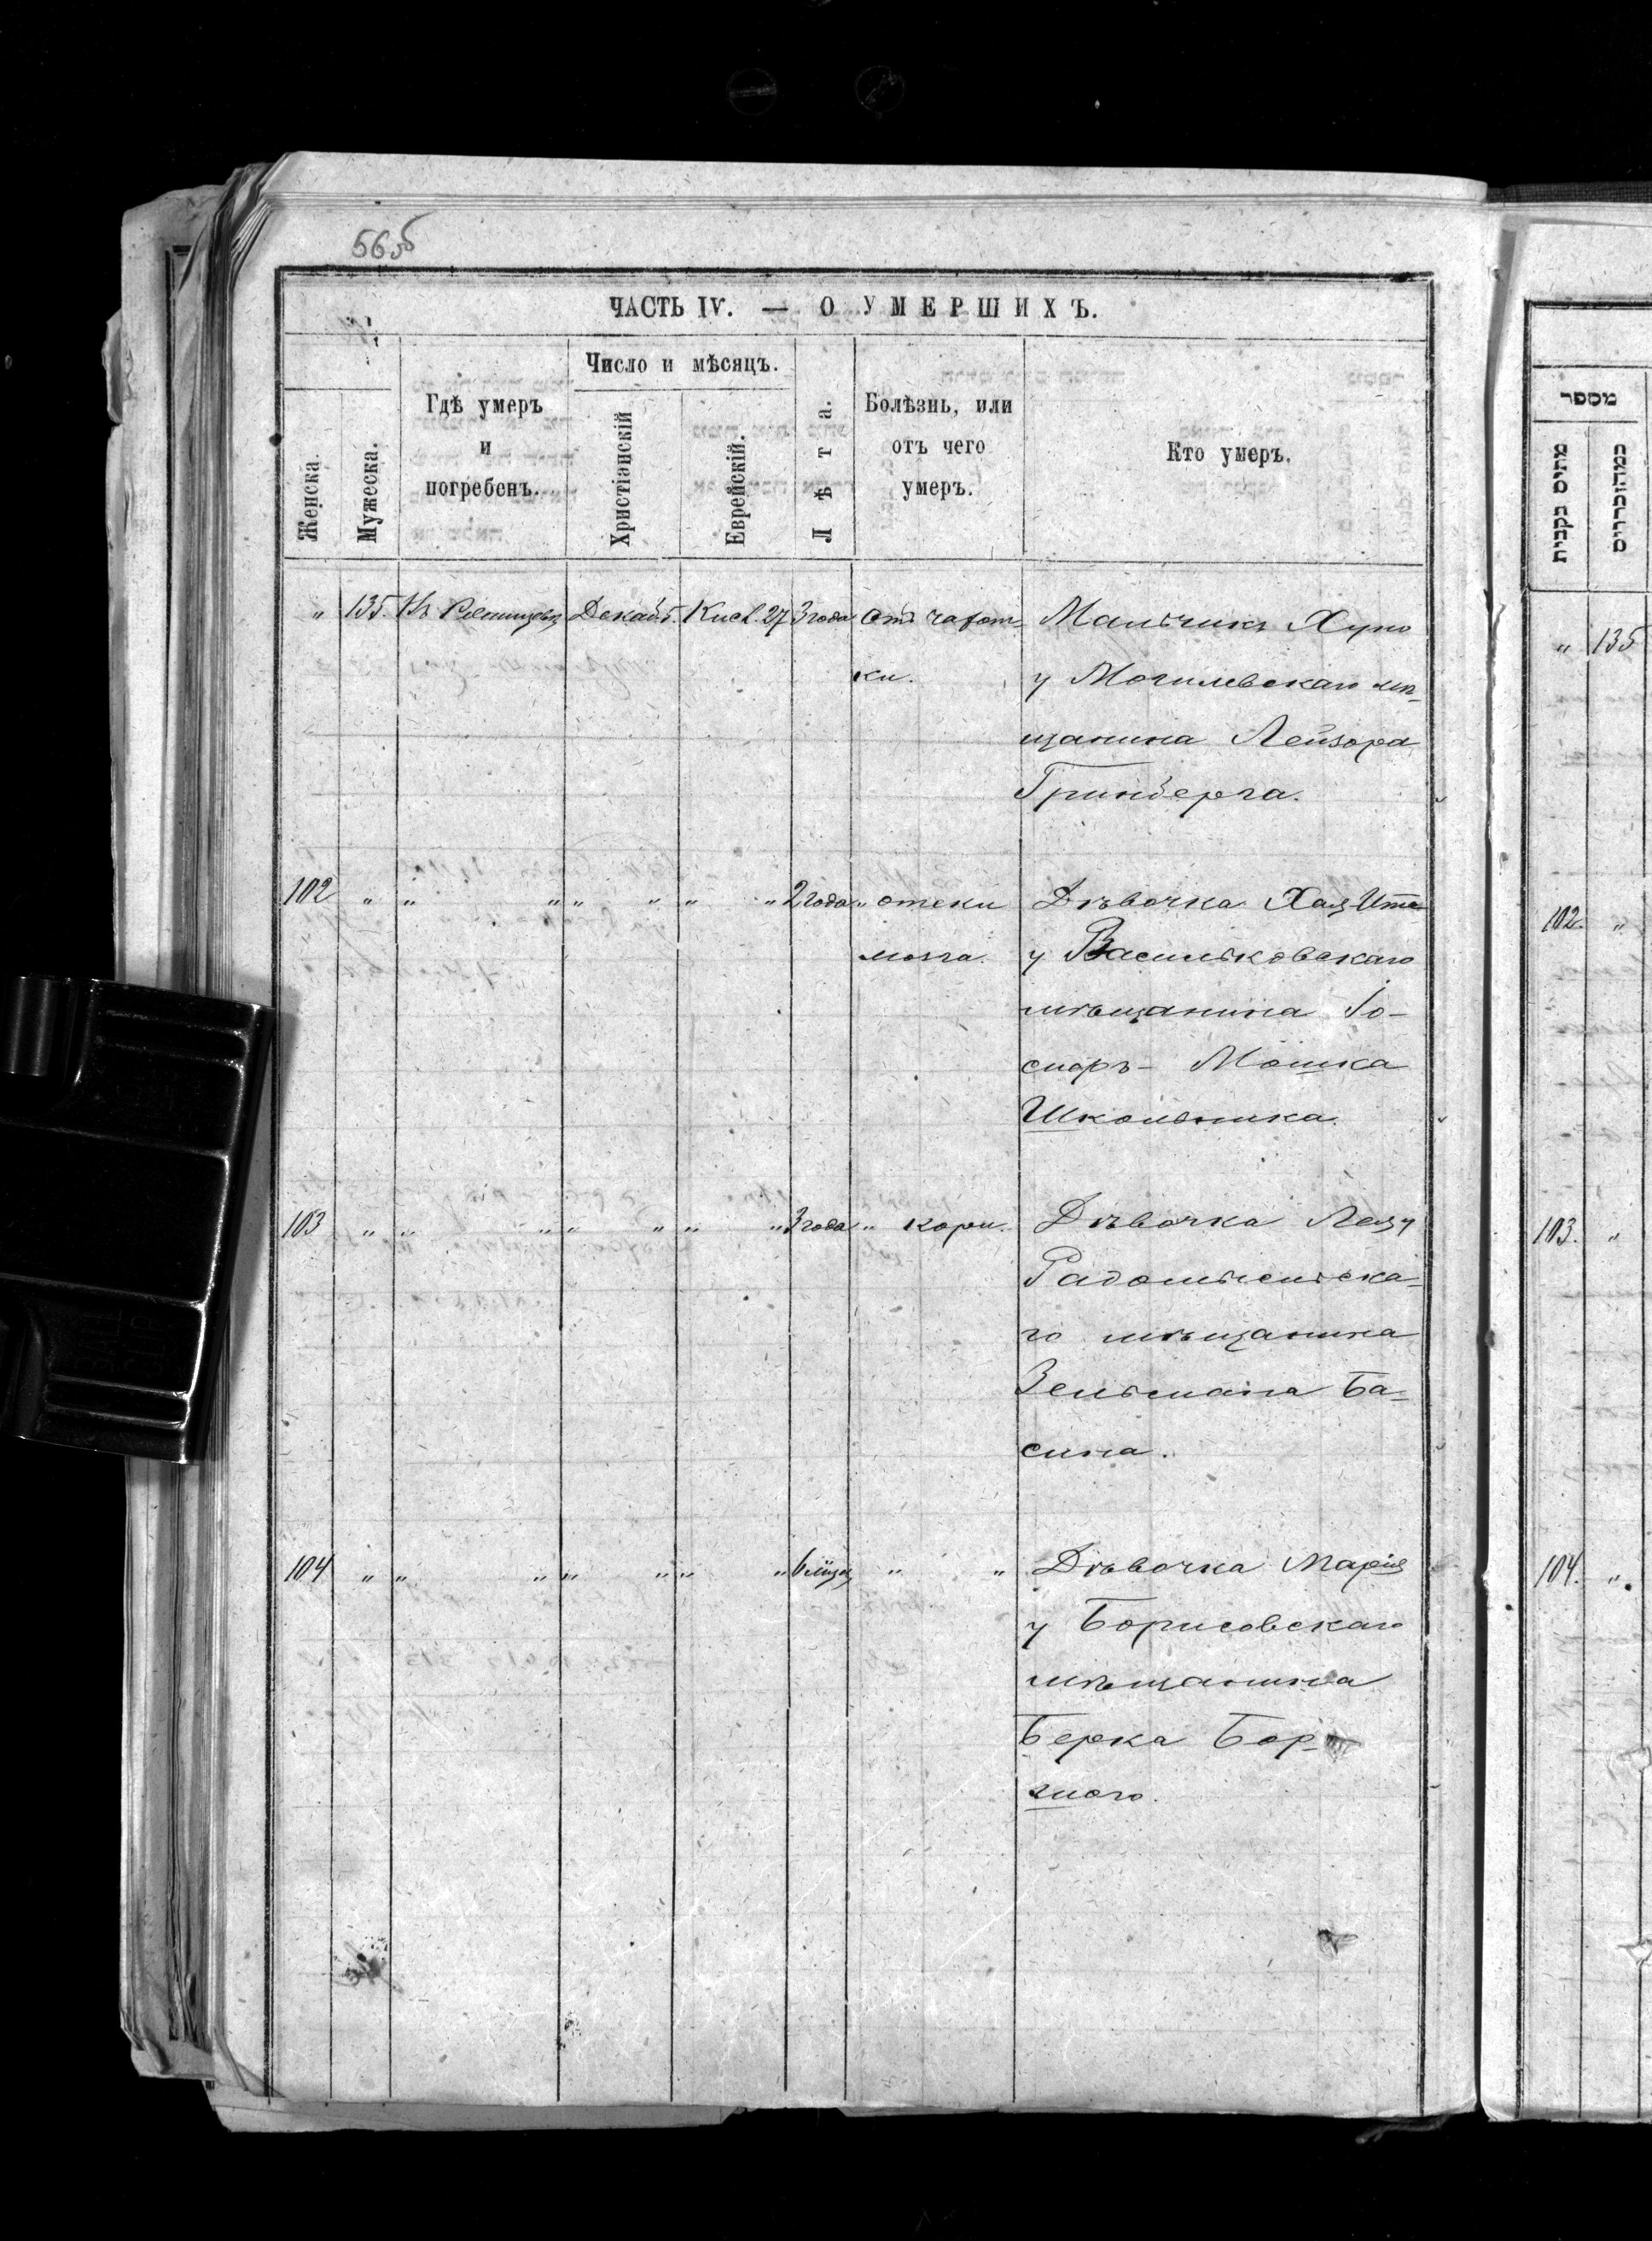 565
ЧАСТЬ IV. — О УМЕРШИХЪ.
Женска.
Мужеска.
Гдѣ умеръ
и
погребенъ.
Число и мѣсяцъ.
Христіанскій
Еврейскій.
Лѣта.
Болѣзнь, или
отъ чего
умеръ.
Кто умеръ.
" 135. Кисл. 27 3 года Отъ чахот-
ки.
Мальчикъ Хуно
у Могилевскаго мѣ-
щанина Лейзора
Гринберга.
102 " " " " " " " 2 года " отеки
мозга.
Дѣвочка Хая Ита
у Васильковскаго
мѣщанина Іо-
сифъ- Мошка
Школьника.
103 " " " " " " " 3 года " кори.
Дѣвочка Лея у
Радомысльска-
го мѣщанина
Зельмана Ба-
сина.
104 " " " " " " " " "
Дѣвочка Марія
у Борисовскаго
мѣщанина
Берка Бор-
מספר
מתים נקבית
כמהזכרים
" 135
102. "
103. "
104. "